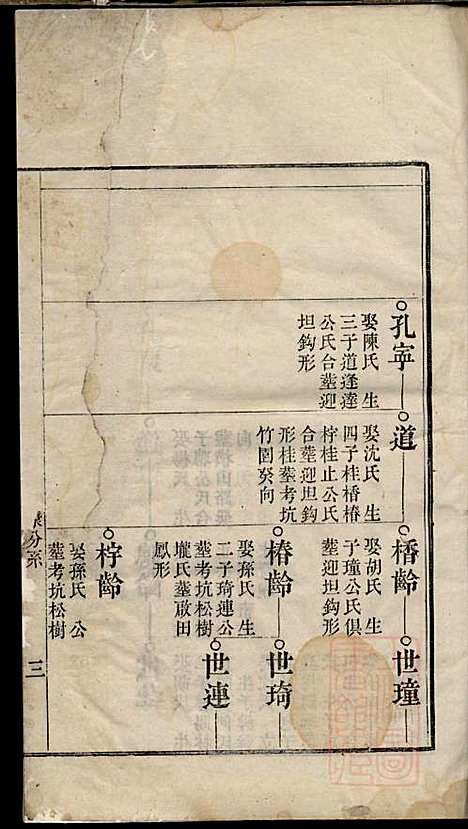 孔寧
娶陳氏生
三子道逢達
公氏合塟迎
坦鈎形
道
娶沈氏生
四子桂楿椿
柠桂止公氏
合塟迎坦鈎
形桂塟考坑
竹園癸向
楿齡
娶胡氏生
子㻿公氏俱
塟迎坦鈎形
世㻿
椿齡
娶孫氏生
二子琦連公
塟考坑松樹
壠氏塟敢田
鳳形
世琦
世連
柠齡
娶孫氏公
塟考坑松樹
分系
三